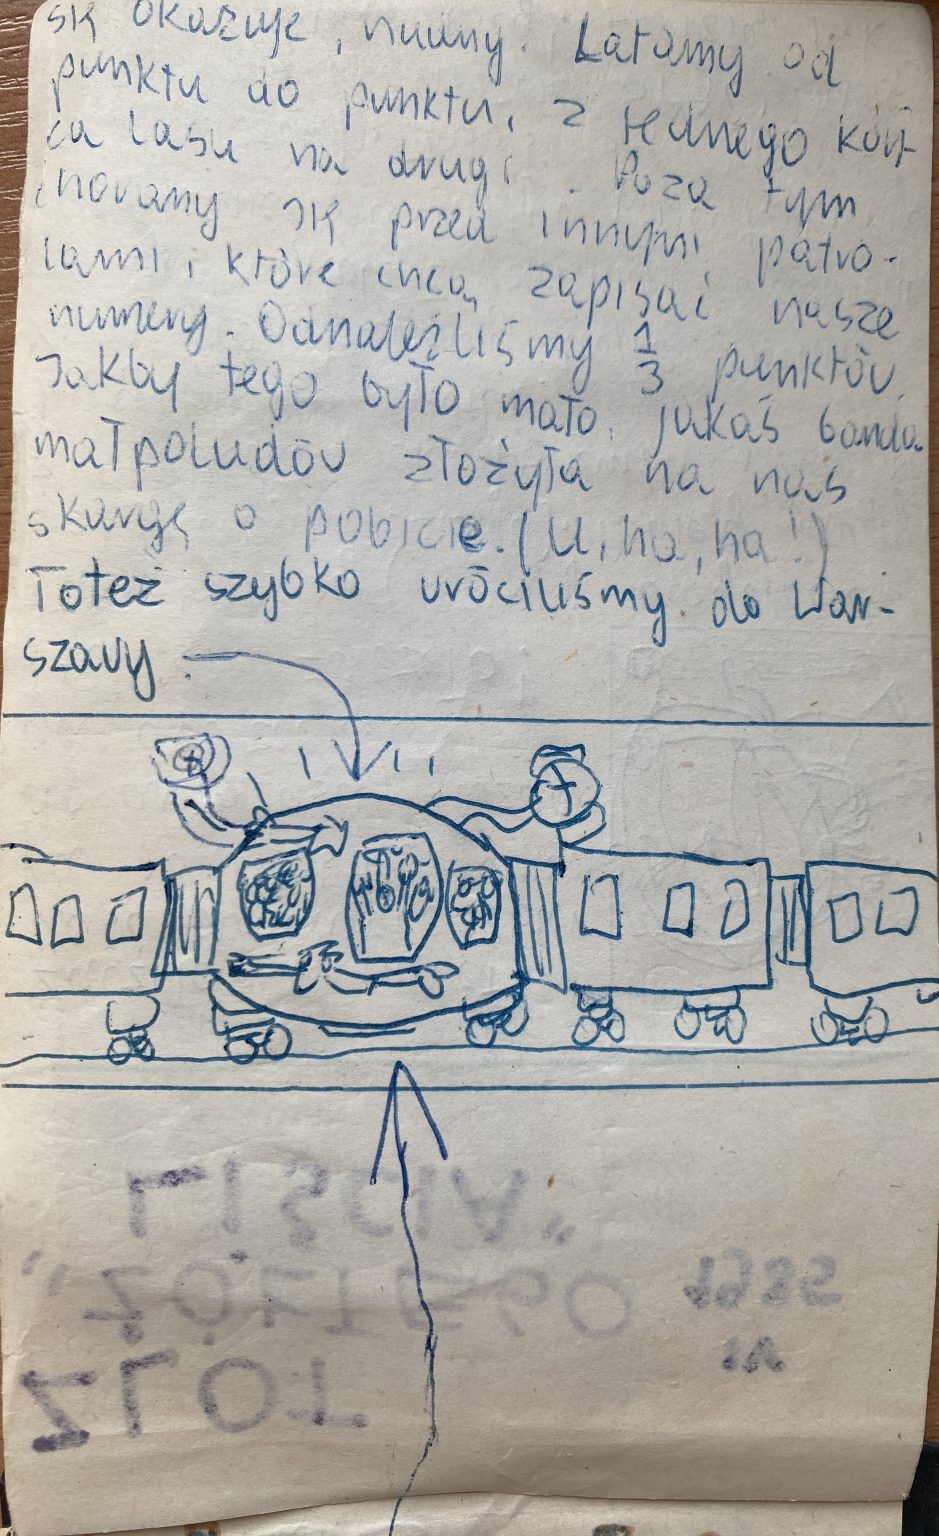 się okazuje, nudny. Latamy od
punktu do punktu, z jednego koń-
ca lasu na drugi. Poza tym
chovamy się przed innymi patro-
lami, które chcą zapisać nasze
numery. Odnaleźliśmy 1/3 punktów.
Jakby tego było mało, jakaś banda
małpoludów złożyła na nas
skargę o pobicie. (U, ha, ha!)
Toteż szybko vróciliśmy do War-
szavy.
„ŻÓŁTEGO
LIŚCIA”
ZLOT
1985